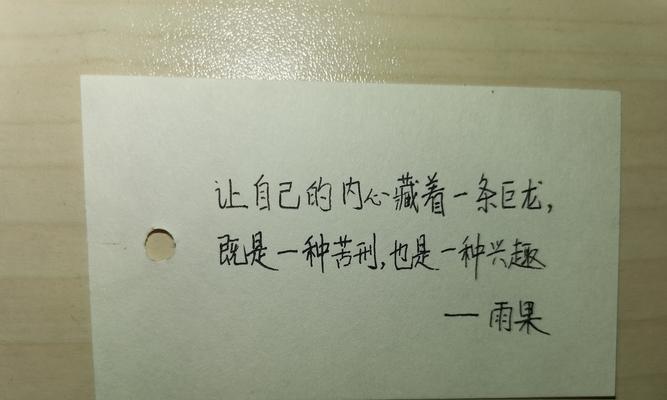 让自己的内心藏着一条巨龙,
既是一种苦刑,也是一种兴趣
— 雨果